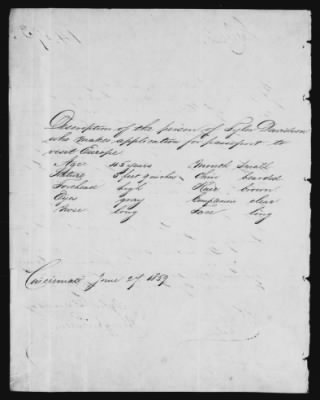 Description of the person of Tyler Davidson
who makes application for passport to
visit Europe
Age 45 years Mouth Small
Stature 5 feet Chin bearded
Forehead high Hair brown
Eyes gray Complexion clear
Nose long Face long
Cincinnati June 27 1859